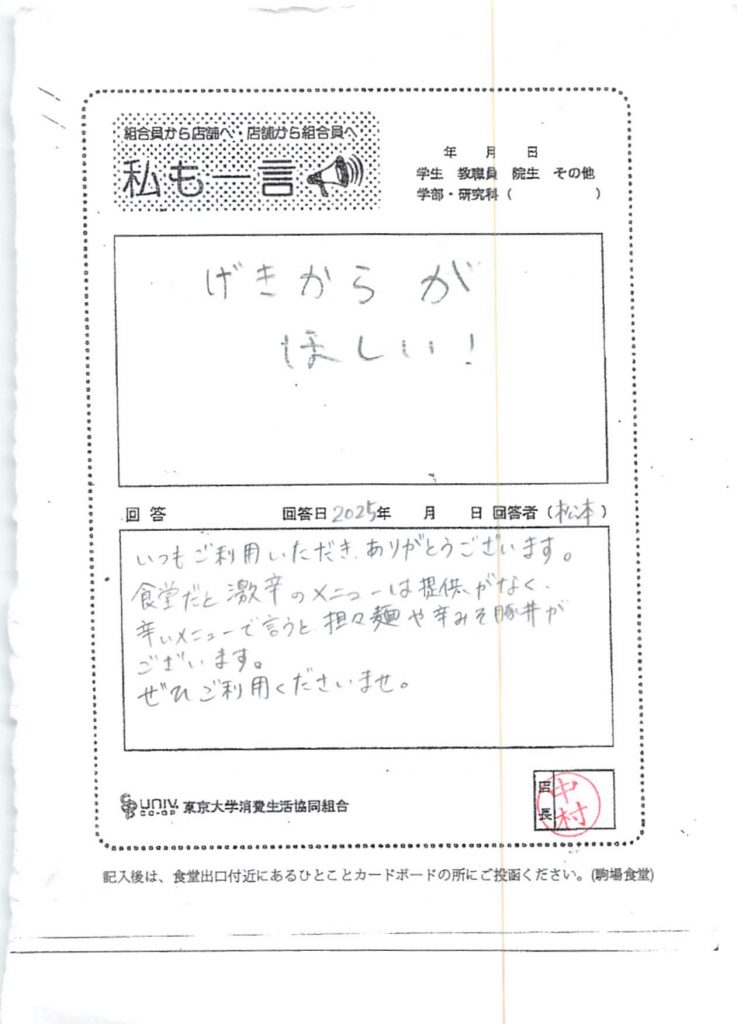 組合員から店舗へ・店舗から組合員へ
私も一言
年 月 日
学生 教職員 院生 その他
学部・研究科( )
げきからが
ほしい!
回答 回答日2025年 月 日 回答者(松本)
いつもご利用いただき、ありがとうございます。
食堂だと激辛のメニューは提供がなく、
辛いメニューで言うと、担々麺や辛みそ豚丼が
ございます。
ぜひご利用くださいませ。
UNIV.
CO-OP
東京大学消費生活協同組合
店長
中村
記入後は、食堂出口付近にあるひとことカードボードの所にご投函ください。(駒場食堂)